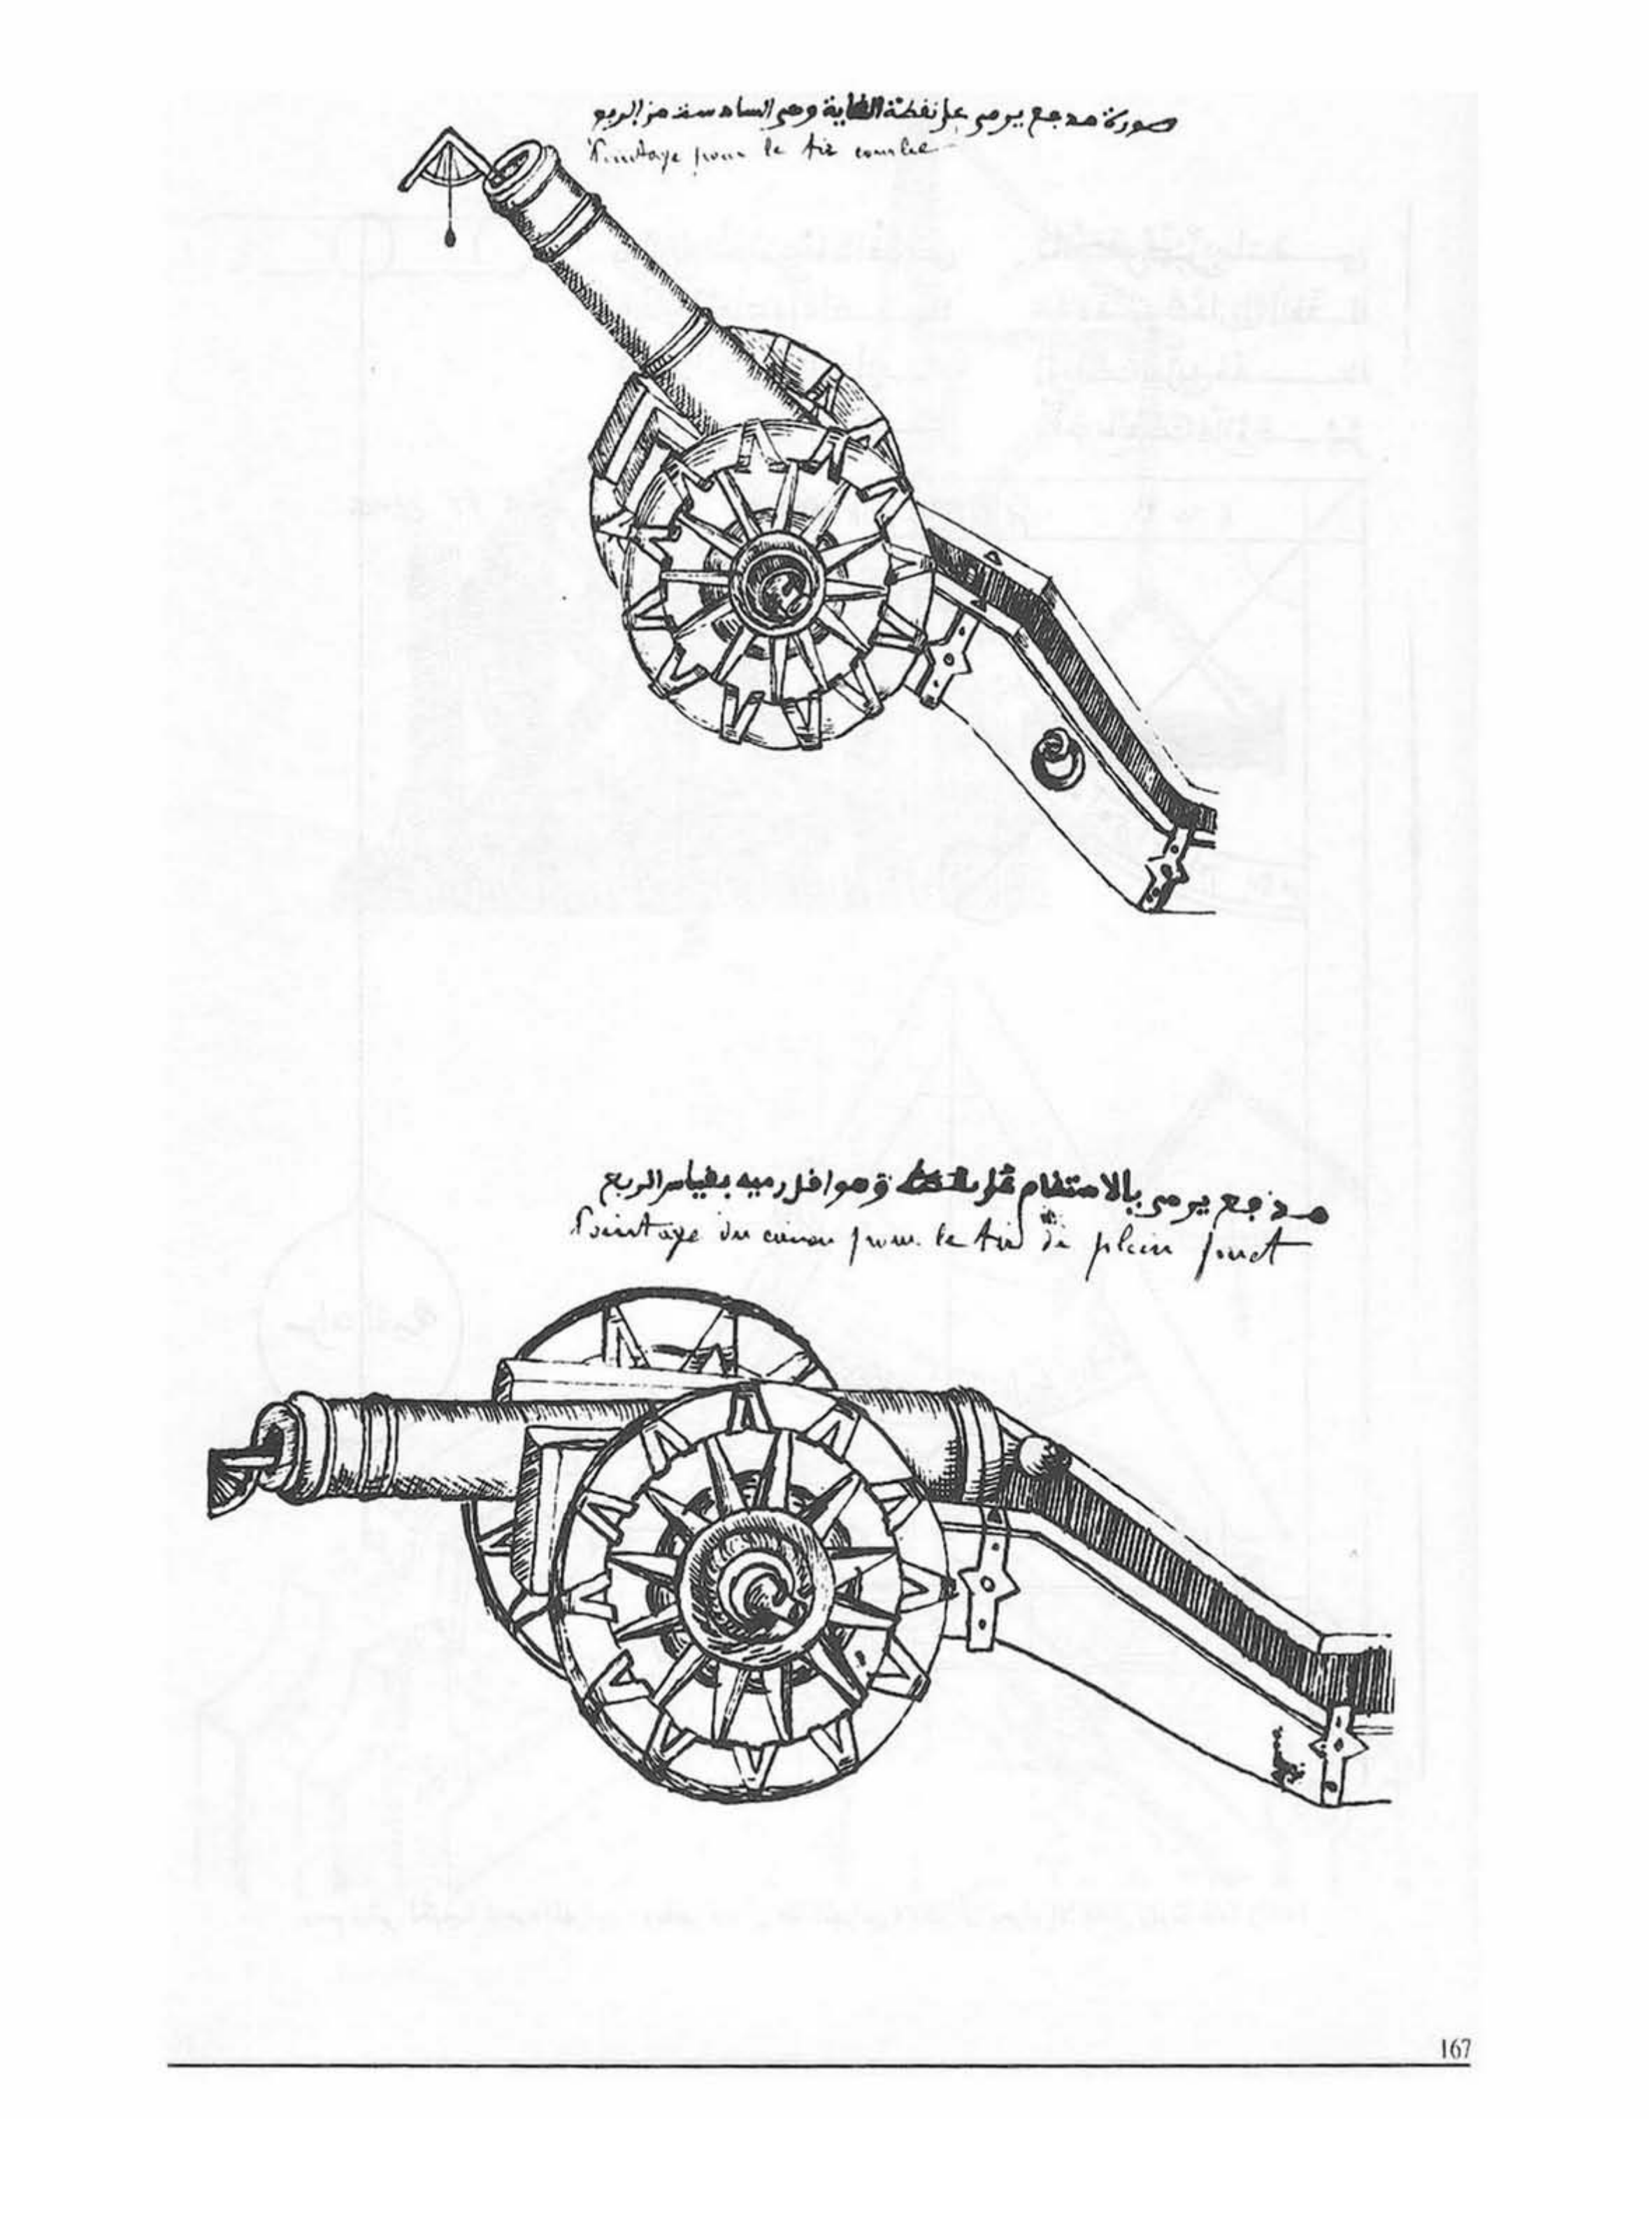 صورة مدجع يرمى على نفطة الغاية وهى السادسة من الربع
Pointage pour le tir courbe
مدجع يرمى بالاستفام وهو افل رميه بفياس الربع
Pointage du canon pour le tir de plein fouet
167